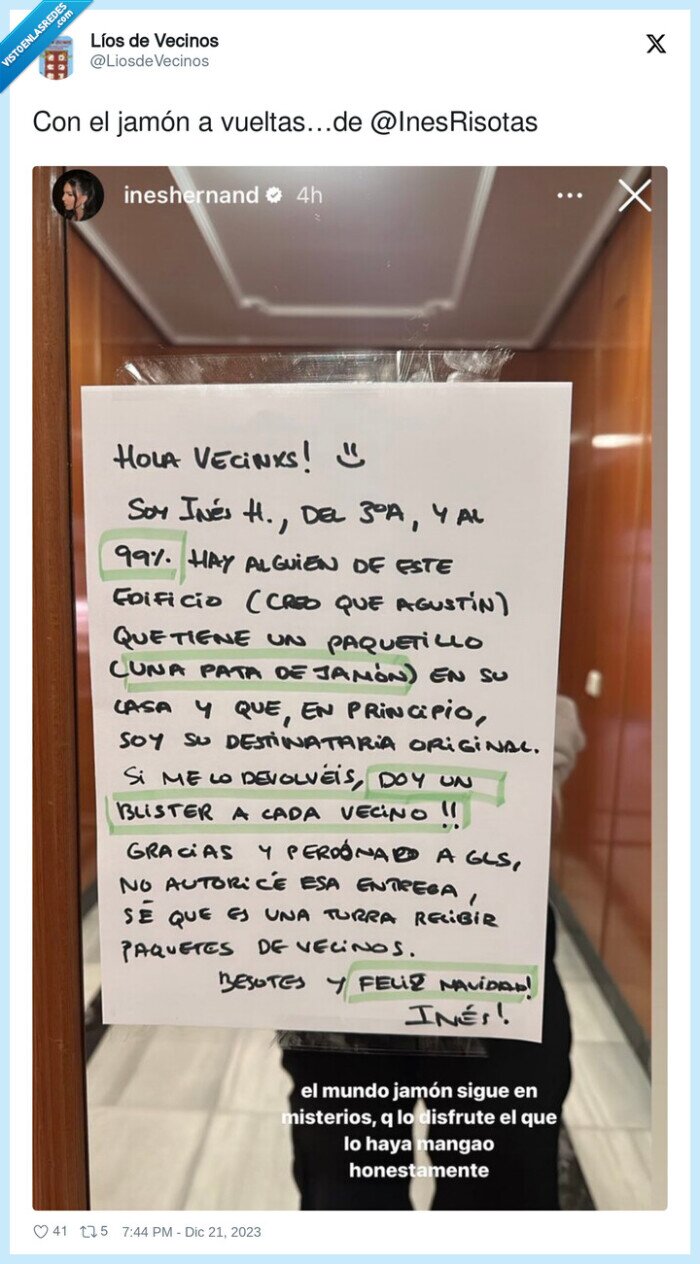 VISTOENLASREDES
.com
Líos de Vecinos
@LiosdeVecinos
X
Con el jamón a vueltas…de @InesRisotas
ineshernand 4h
HOLA VECINXS!
SOY INÉS H., DEL 3ºA, Y AL
99% HAY ALGUIEN DE ESTE
EDIFICIO (CREO QUE AGUSTÍN)
QUE TIENE UN PAQUETILLO
(UNA PATA DE JAMÓN) EN SU
CASA Y QUE, EN PRINCIPIO,
SOY SU DESTINATARIA ORIGINAL.
SI ME LO DEVOLVÉIS, DOY UN
BLISTER A CADA VECINO !!
GRACIAS Y PERDONAD A GLS,
NO AUTORICÉ ESA ENTREGA,
SÉ QUE ES UNA TURRA RECIBIR
PAQUETES DE VECINOS.
BESOTES Y FELIZ NAVIDAD!
INÉS!
el mundo jamón sigue en
misterios, q lo disfrute el que
lo haya mangao
honestamente
41 5 7:44 PM - Dic 21, 2023